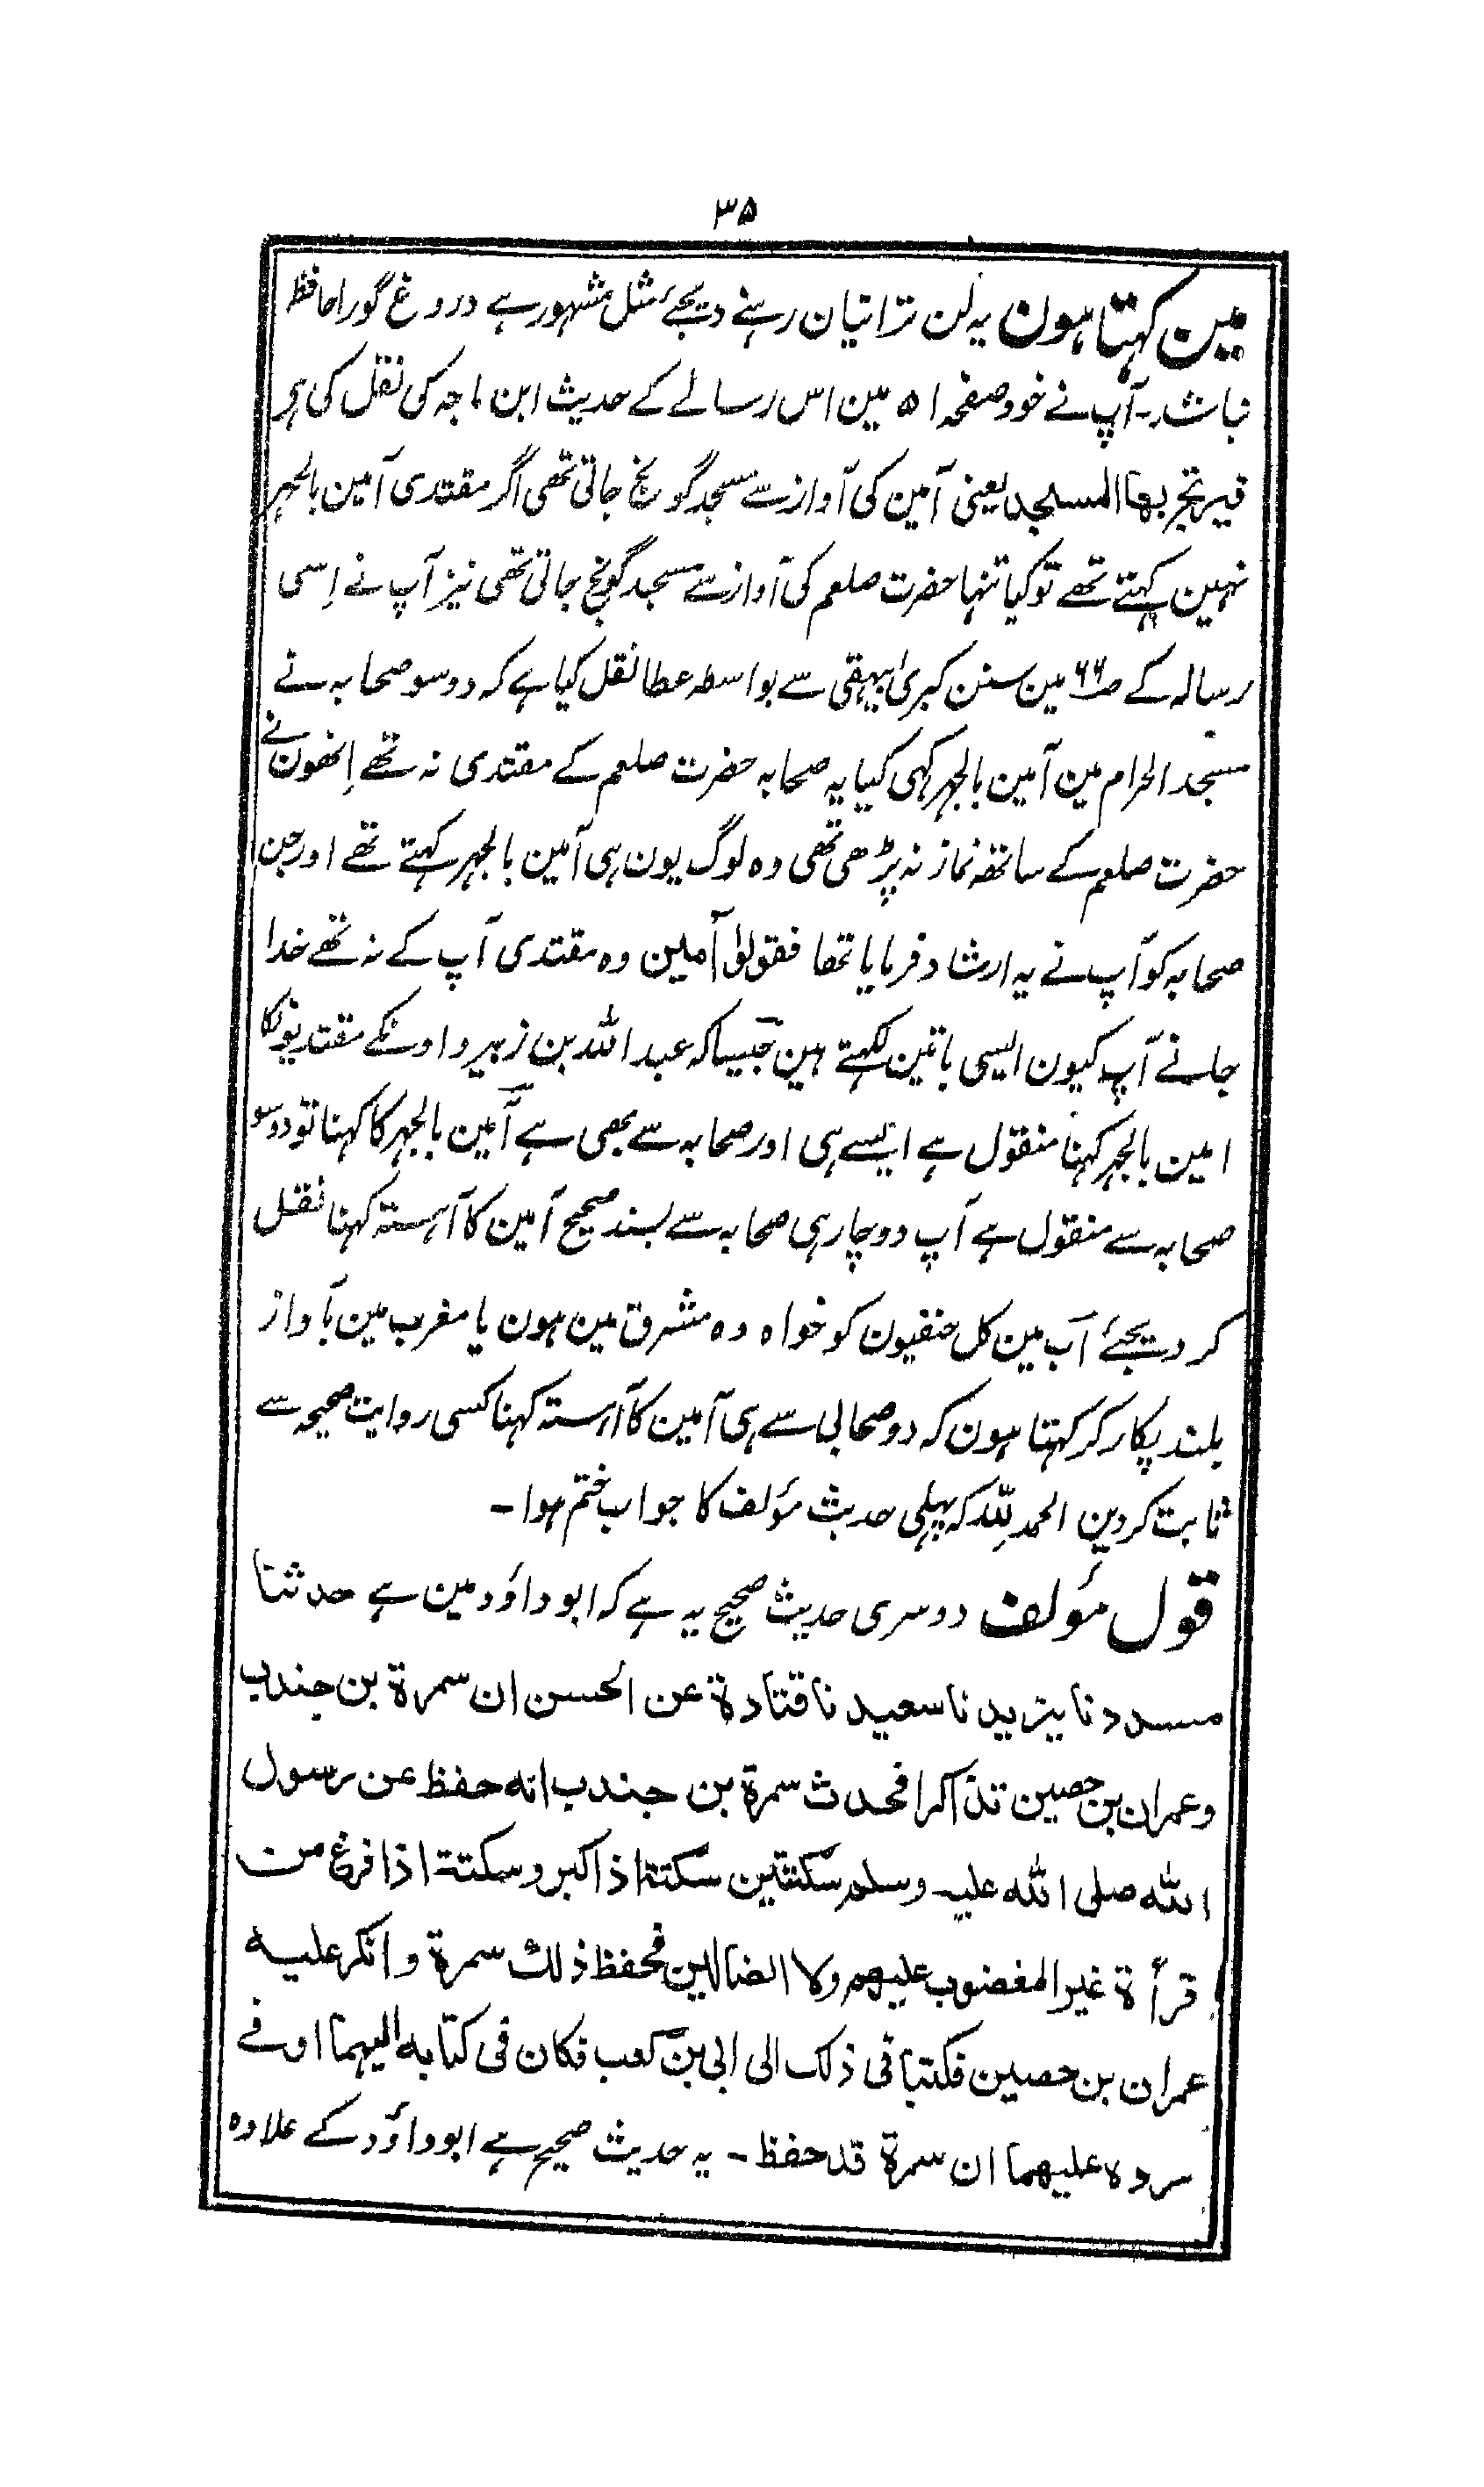 ۳۵
مین کہتا ہون یہ لن ترانیان رہنے دیجئے مثل مشہور ہے دروغ گورا حافظہ
نباشد۔ آپ نے خود صفحہ ۵۱ مین اس رسالے کے حدیث ابن ماجہ کی نقل کی ہر
فیرتج بھا المسجد یعنی آمین کی آواز سے مسجد گونج جاتی تھی اگر مقتدی آمین بالجہر
نہین کہتے تھے تو کیا تنہا حضرت صلعم کی آواز سے مسجد گونج جاتی تھی نیز آپ نے اِسی
رسالہ کے ص۶۶ مین سنن کبریٰ بیہقی سے بواسطہ عطا نقل کیا ہے کہ دو سو صحابہ نے
مسجد الحرام مین آمین بالجہر کہی کیا یہ صحابہ حضرت صلعم کے مقتدی نہ تھے اِنھون نے
حضرت صلعم کے ساتھ نماز نہ پڑھی تھی وہ لوگ یون ہی آمین بالجہر کہتے تھے اور جن
صحابہ کو آپ نے یہ ارشاد فرمایا تھا فقولوا آمین وہ مقتدی آپ کے نہ تھے خدا
جانے آپ کیون ایسی باتین لکھتے ہین جیسا کہ عبد اللہ بن زبیر و اونکے مقتدیونکا
امین بالجہر کہنا منقول ہے ایسے ہی اور صحابہ سے بھی ہے آمین بالجہر کا کہنا تو دو سو
صحابہ سے منقول ہے آپ دو چار ہی صحابہ سے بسند صحیح آمین کا آہستہ کہنا نقل
کر دیجئے اب مین کل حنفیون کو خواہ وہ مشرق مین ہون یا مغرب مین بآواز
بلند پکار کر کہتا ہون کہ دو صحابی سے ہی آمین کا آہستہ کہنا کسی روایت صحیحہ سے
ثابت کردین الحمد للہ کہ پہلی حدیث مؤلف کا جواب ختم ہوا۔
قول مؤلف دوسری حدیث صحیح یہ ہے کہ ابو داؤد مین ہے حدثنا
مسدد نا یزید نا سعید نا قتادة عن الحسن ان سمرة بن جندب
وعمران بن حصین تذاکرا فحدث سمرة بن جندب انه حفظ عن رسول
اللہ صلی اللہ علیہ وسلم سکتتین سکتة اذا کبر وسکتة اذا فرغ من
قرأة غیر المغضوب علیھم ولا الضالین فحفظ ذلک سمرة وانکر علیه
عمران بن حصین فکتبا فی ذلک الی ابی بن کعب فکان فی کتابه الیھما او فے
سردہ علیھما ان سمرة قد حفظ۔ یہ حدیث صحیح ہے ابو داؤد کے علاوہ